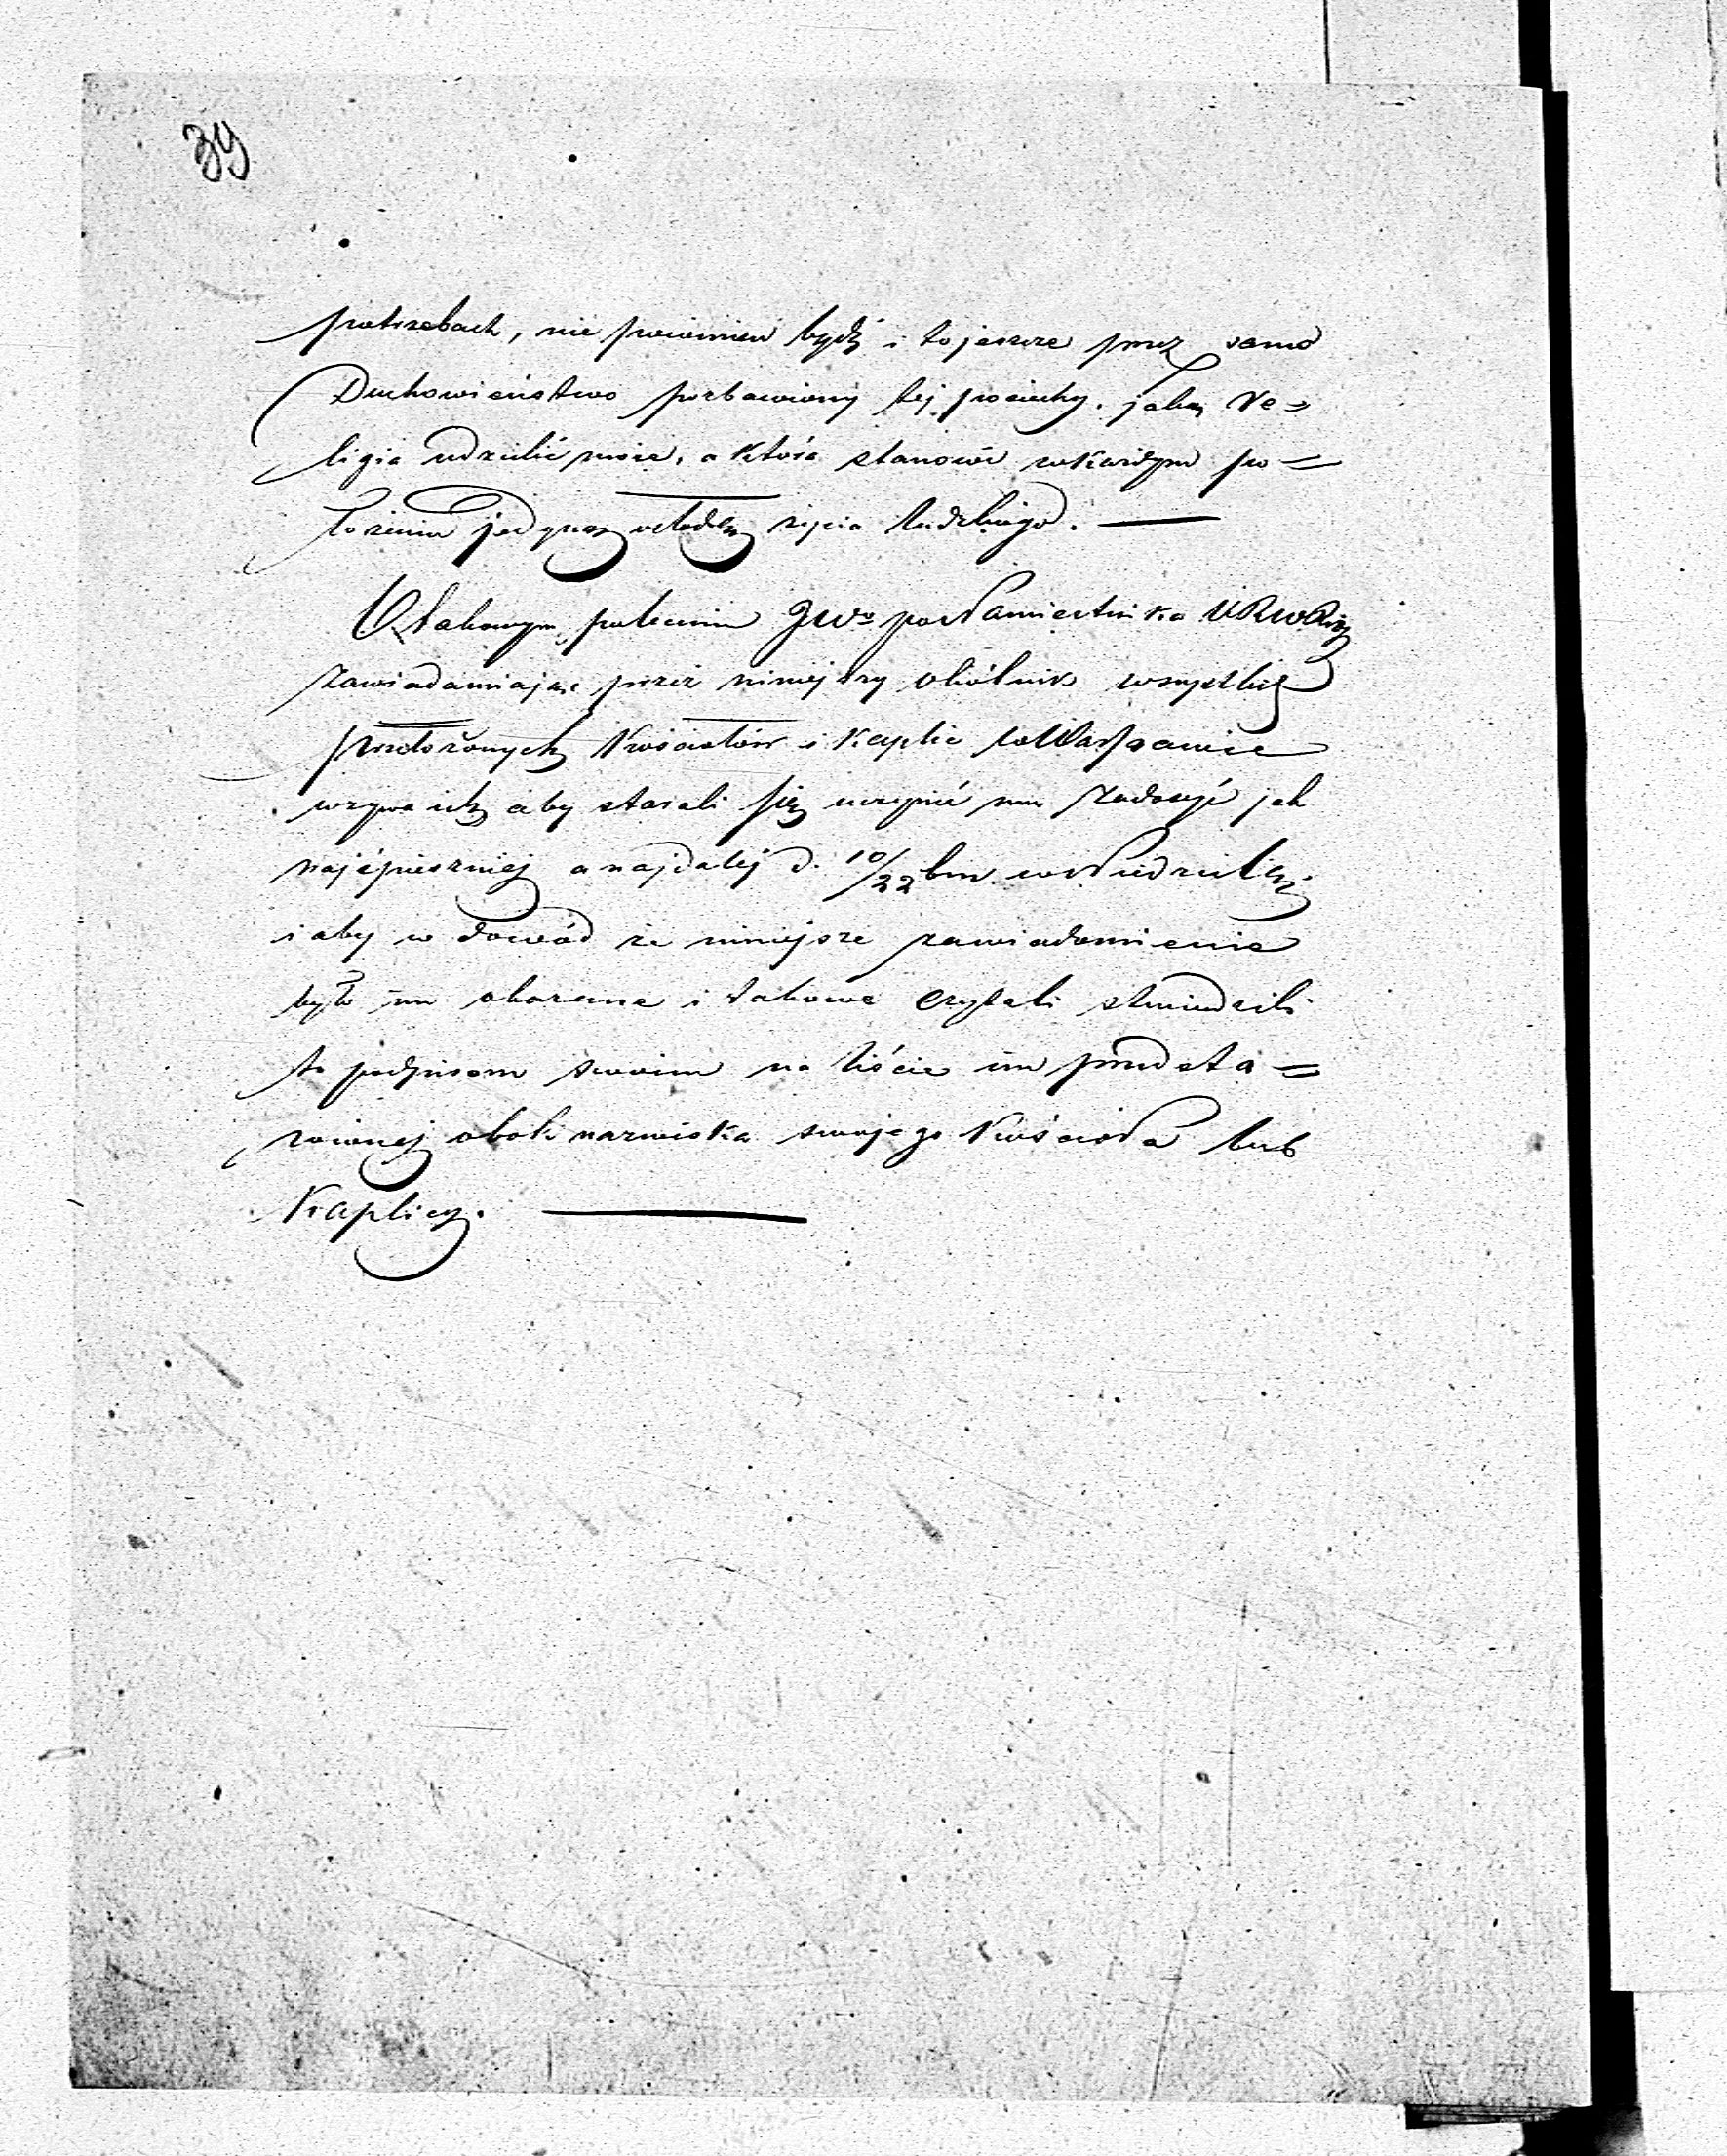 39
potrzebach, nie powinien bydź i to jeszcze przez samo
Duchowieństwo pozbawiony tej pociechy, jaką Re=
ligia udzielić może, a która stanowi w każdym po=
łożeniu jedyną osłodę życia ludzkiego. —
O takowym poleceniu JWo po Namiestnika
zawiadamiając przez niniejszy okólnik wszystkich
przełożonych Kościołów i Kaplic w Warszawie
wzywa ich aby starali się uczynić mu zadosyć jak
najśpieszniej a najdalej d. 10/22 bm. w Niedzielę,
i aby w dowód że niniejsze zawiadomienie
było im okazane i takowe czytali stwierdzili
to podpisem swoim na liście im przedsta=
wionej obok nazwiska swojego Kościoła lub
Kaplicy. —